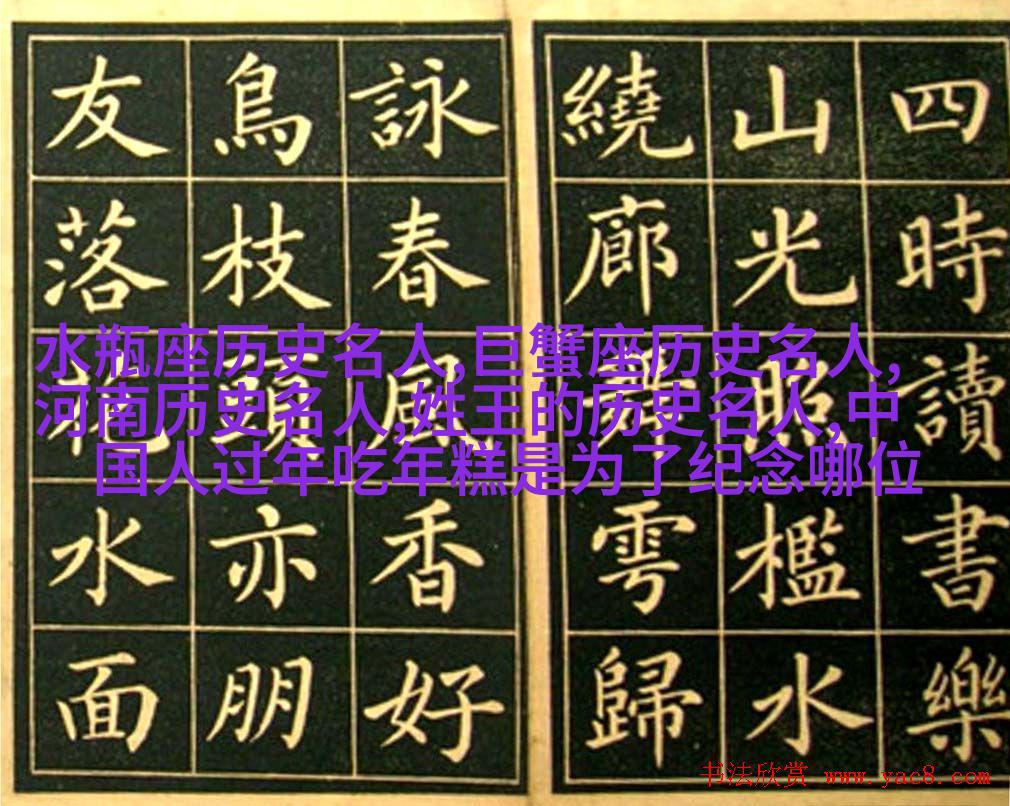 四時讀書樂
山光照檻水
繞廊舞雩歸
詠春風香好
鳥枝頭亦朋
友落花水面
水瓶座历史名人,巨蟹座历史名人,
河南历史名人,姓王的历史名人,中
国人过年吃年糕是为了纪念哪位
书法欣赏 www.yac8.com